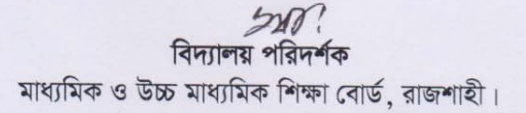 বিদ্যালয় পরিদর্শক
মাধ্যমিক ও উচ্চ মাধ্যমিক শিক্ষা বোর্ড, রাজশাহী ।